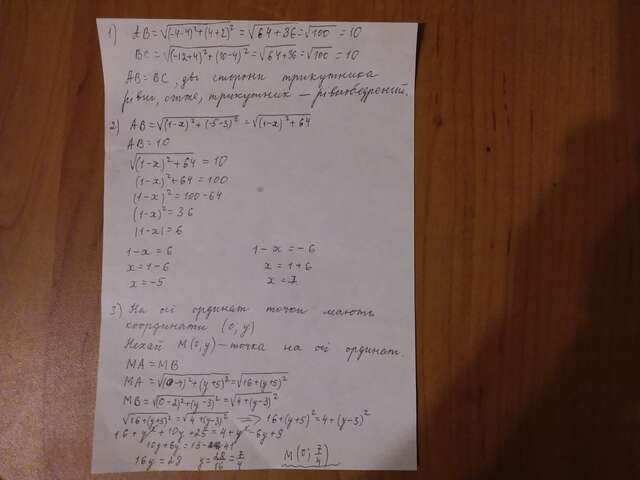 1) AB = √(-4-4)² + (4+2)² = √64+36 = √100 = 10
BC = √(-12-4)² + (10-4)² = √64+36 = √100 = 10
AB = BC; дві сторони трикутника
рівні, отже, трикутник – рівнобедрений.
2) AB = √(1-x)² + (-5-3)² = √(1-x)² + 64
AB = 10
√(1-x)² + 64 = 10
(1-x)² + 64 = 100
(1-x)² = 100-64
(1-x)² = 36
|1-x| = 6
1-x = 6 1-x = -6
x = 1-6 x = 1+6
x = -5 x = 7
3) На осі ординат точки мають
координати (0; y)
Нехай M(0; y) – точка на осі ординат.
MA = MB
MA = √(0-4)² + (y+5)² = √16 + (y+5)²
MB = √(0-2)² + (y-3)² = √4 + (y-3)²
√16 + (y+5)² = √4 + (y-3)² ⇒ 16 + (y+5)² = 4 + (y-3)²
16 + y² + 10y + 25 = 4 + y² - 6y + 9
10y + 6y =
16y =
M(0;